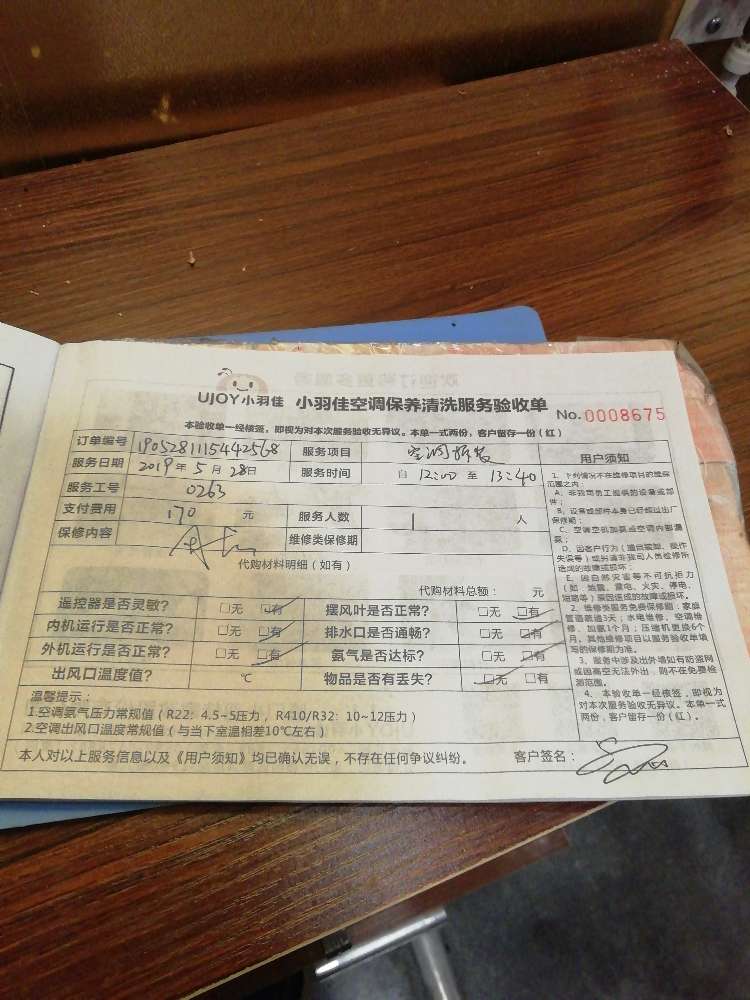 UJOY小羽佳 小羽佳空调保养清洗服务验收单 No.0008675
本验收单一经核签，即视为对本次服务验收无异议。本单一式两份，客户留存一份（红）
订单编号 1905281115442568 服务项目 空调拆装 用户须知
服务日期 2019年5月28日 服务时间 自 12:00 至 13:40
服务工号 0263
支付费用 170 元 服务人数 1 人
保修内容 维修类保修期
代购材料明细（如有）
代购材料总额： 元
遥控器是否灵敏？ □无 □有 摆风叶是否正常？ □无 □有
内机运行是否正常？ □无 □有 排水口是否通畅？ □无 □有
外机运行是否正常？ □无 □有 氨气是否达标？ □无 □有
出风口温度值？ ℃ 物品是否有丢失？ □无 □有
温馨提示：
1.空调氨气压力常规值（R22：4.5~5压力，R410/R32：10~12压力）
2.空调出风口温度常规值（与当下室温相差10℃左右）
本人对以上服务信息以及《用户须知》均已确认无误，不存在任何争议纠纷。 客户签名：
1、下列情况不在维修项目的维保
范围之内：
A、非我司员工提供的设备或部
件；
B、设备或部件本身已经超过出厂
保修期；
C、空调空机加氨或空调内部漏
氨；
D、因客户行为（通讯损毁、操作
失误等）或另请非我司人员检修所
造成的故障或损坏；
E、因自然灾害等不可抗拒力
（如：地震、雷电、火灾、停电、
短路等）原因造成的故障或损坏。
2、维修类服务免费保修期：家庭
管道疏通3天；水电维修、空调维
修、加氨1个月；压缩机更换6个
月。其他维修项目以服务验收单填
写的保修期为准。
3、服务中涉及出外墙如有防盗网
或因高空无法外出，则不在免费检
测范围。
4、本验收单一经核签，即视为
对本次服务验收无异议。本单一式
两份，客户留存一份（红）。